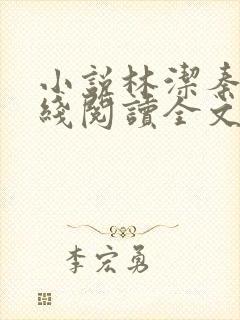 小説林潔秦
綫閱讀全文
李宏勇